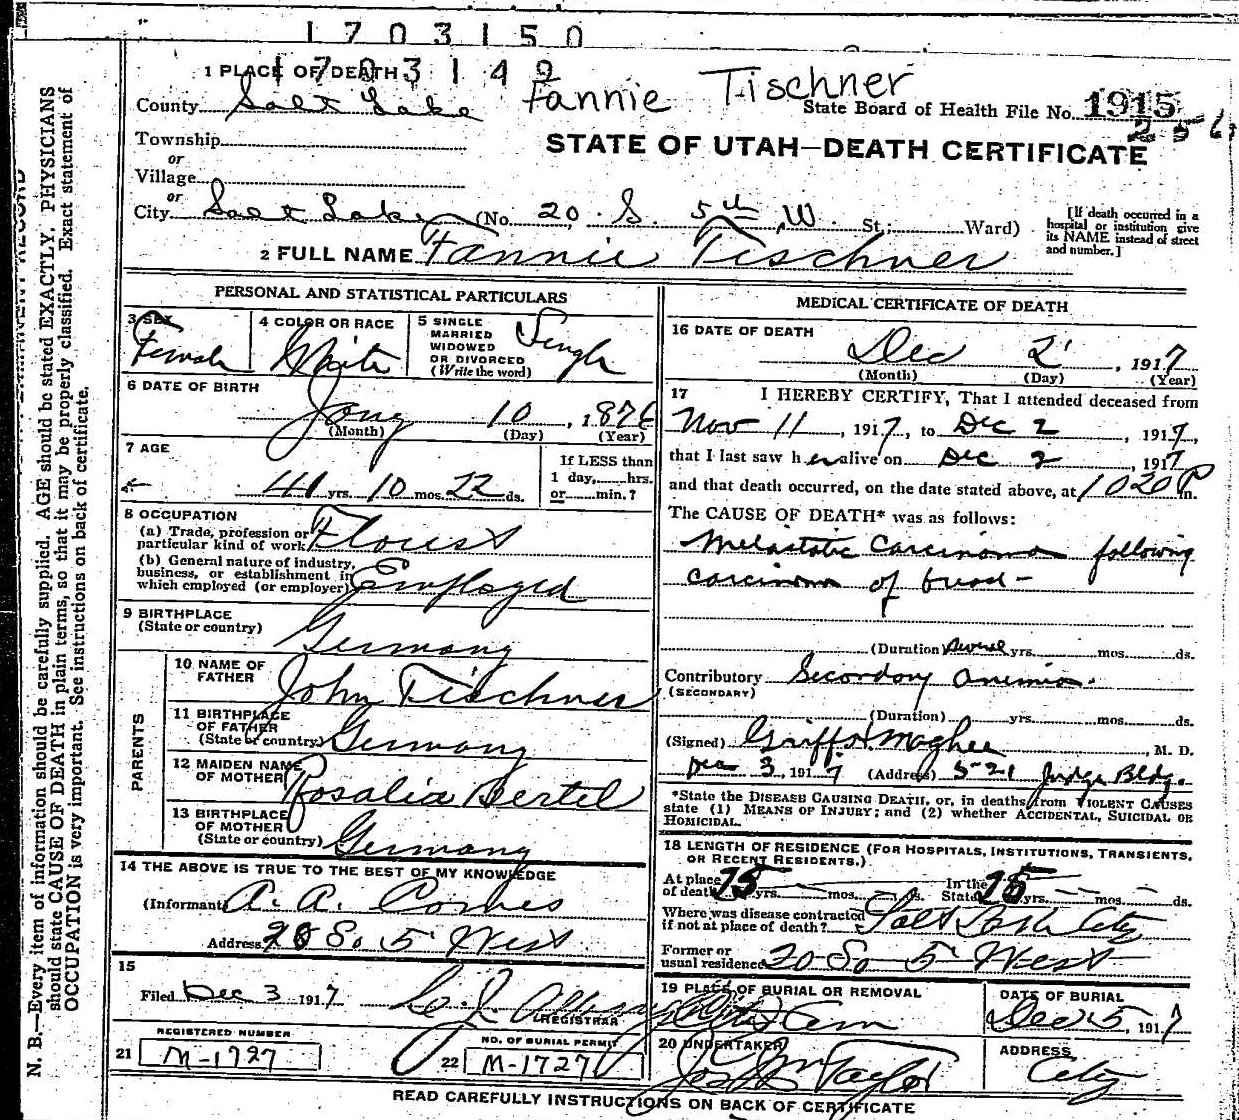 1703150
1703149
1 PLACE OF DEATH
Fannie Tischner
County Salt Lake
State Board of Health File No. 1915
256
Township
or
STATE OF UTAH—DEATH CERTIFICATE
Village
or
City Salt Lake (No. 20 S. 5th W. St.; Ward)
[If death occurred in a hospital or institution give its NAME instead of street and number.]
2 FULL NAME Fannie Tischner
PERSONAL AND STATISTICAL PARTICULARS
3 SEX
Female
4 COLOR OR RACE
White
5 SINGLE
MARRIED
WIDOWED
OR DIVORCED
(Write the word)
Single
6 DATE OF BIRTH
Jany 10, 1876
(Month) (Day) (Year)
7 AGE
41 yrs. 10 mos. 22 ds.
If LESS than
1 day, hrs.
or min.?
8 OCCUPATION
(a) Trade, profession or
particular kind of work Florist
(b) General nature of industry,
business, or establishment in
which employed (or employer) Employed
9 BIRTHPLACE
(State or country)
Germany
PARENTS
10 NAME OF
FATHER John Tischner
11 BIRTHPLACE
OF FATHER
(State or country) Germany
12 MAIDEN NAME
OF MOTHER Rosalia Bertel
13 BIRTHPLACE
OF MOTHER
(State or country) Germany
14 THE ABOVE IS TRUE TO THE BEST OF MY KNOWLEDGE
(Informant A. A.
Address 20 So 5 West
15
Filed Dec 3 1917
REGISTRAR
REGISTERED NUMBER
21 M-1727
NO. OF BURIAL PERMIT
22 M-1727
MEDICAL CERTIFICATE OF DEATH
16 DATE OF DEATH
Dec 2, 1917
(Month) (Day) (Year)
17 I HEREBY CERTIFY, That I attended deceased from
Nov 11, 1917, to Dec 2, 1917,
that I last saw her alive on Dec 2, 1917
and that death occurred, on the date stated above, at 1020 P m.
The CAUSE OF DEATH* was as follows:
Metastatic Carcinoma following
carcinoma of breast-
(Duration) several yrs. mos. ds.
Contributory Secondary anemia.
(SECONDARY)
(Duration) yrs. mos. ds.
(Signed) Maghee, M. D.
Dec 3, 1917 (Address) 521 Judge Bldg.
*State the DISEASE CAUSING DEATH, or, in deaths from VIOLENT CAUSES
state (1) MEANS OF INJURY; and (2) whether ACCIDENTAL, SUICIDAL OR
HOMICIDAL.
18 LENGTH OF RESIDENCE (FOR HOSPITALS, INSTITUTIONS, TRANSIENTS,
OR RECENT RESIDENTS.)
At place
of death 15 yrs. mos. ds. In the State 15 yrs. mos. ds.
Where was disease contracted
if not at place of death? Salt Lake City
Former or
usual residence 20 So 5 West
19 PLACE OF BURIAL OR REMOVAL
City Cem
DATE OF BURIAL
Dec 5, 1917
20 UNDERTAKER
Taylor
ADDRESS
City
READ CAREFULLY INSTRUCTIONS ON BACK OF CERTIFICATE
N. B.—Every item of information should be carefully supplied. AGE should be stated EXACTLY. PHYSICIANS
should state CAUSE OF DEATH in plain terms, so that it may be properly classified. Exact statement of
OCCUPATION is very important. See instructions on back of certificate.